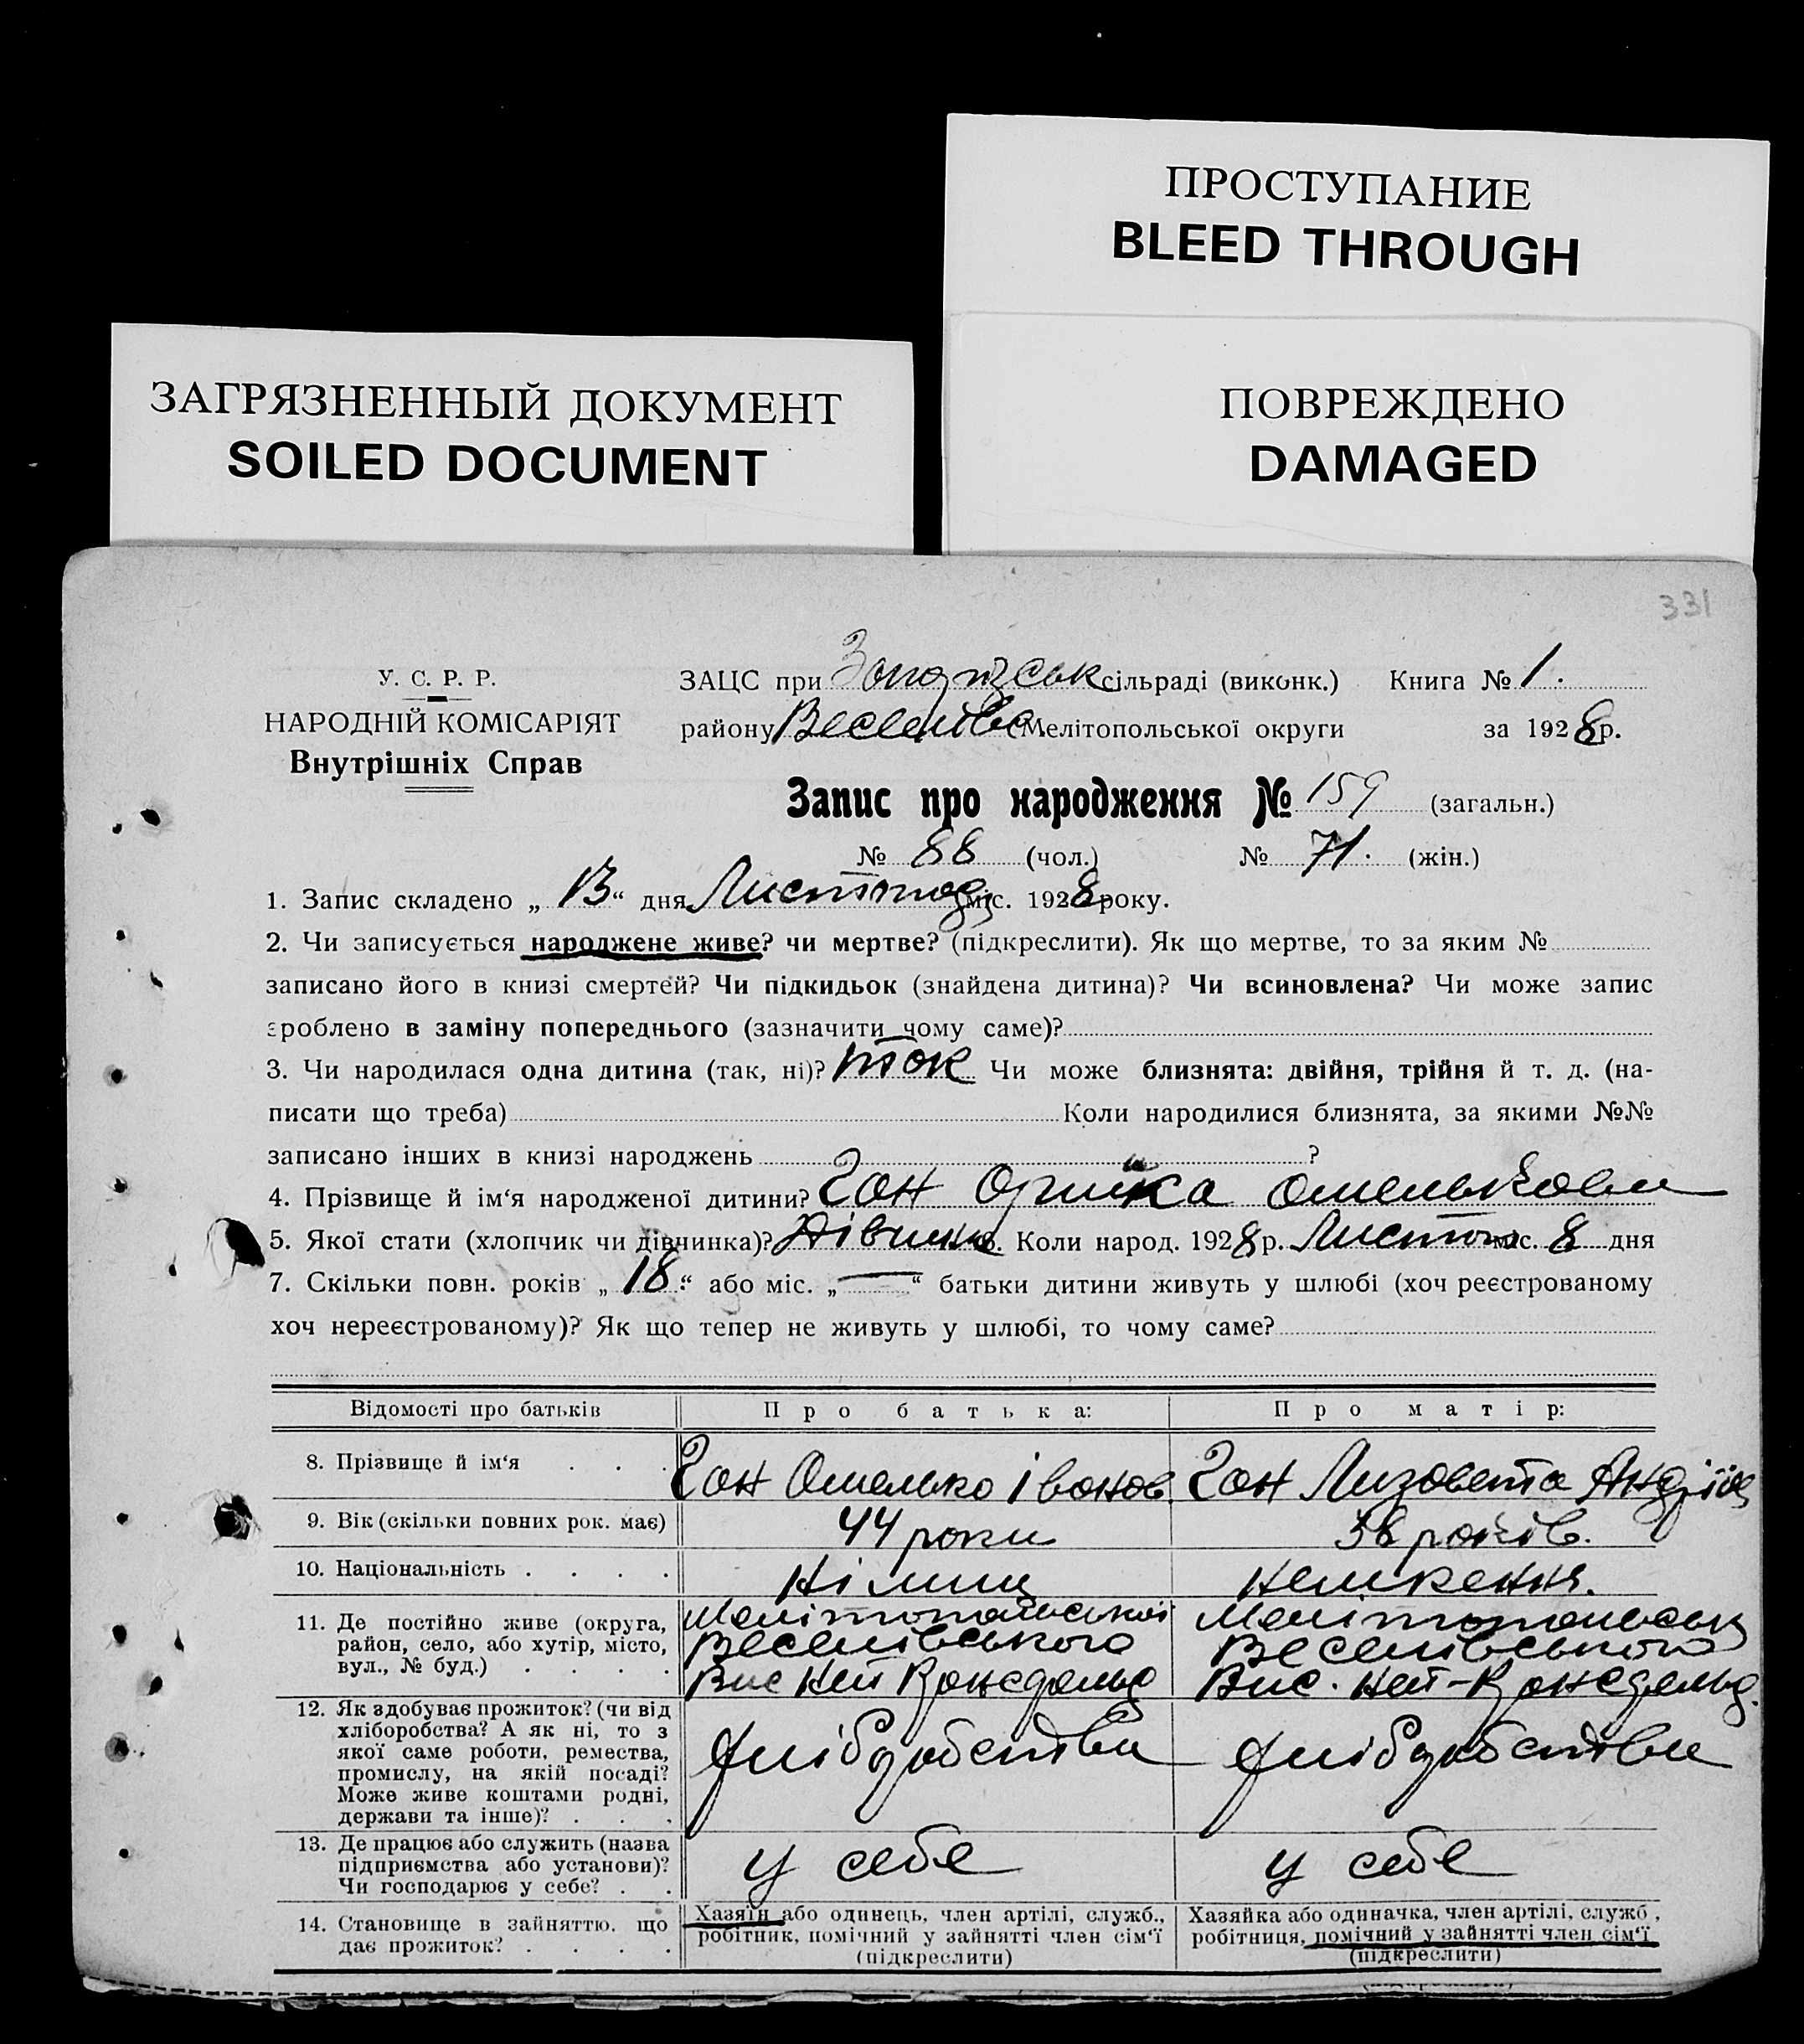 ПРОСТУПАНИЕ
BLEED THROUGH
ЗАГРЯЗНЕННЫЙ ДОКУМЕНТ
SOILED DOCUMENT
ПОВРЕЖДЕНО
DAMAGED
331
У. С. Р. Р.
НАРОДНІЙ КОМІСАРІЯТ
Внутрішніх Справ
ЗАЦС при сільраді (виконк.) Книга № 1.
району Веселівс Мелітопольської округи за 1928 р.
Запис про народження № 159 (загальн.)
№ 88 (чол.) № 71. (жін.)
1. Запис складено „ 13 “ дня Листопад міс. 1928 року.
2. Чи записується народжене живе? чи мертве? (підкреслити). Як що мертве, то за яким №
записано його в книзі смертей? Чи підкидьок (знайдена дитина)? Чи всиновлена? Чи може запис
зроблено в заміну попереднього (зазначити чому саме)?
3. Чи народилася одна дитина (так, ні)? так Чи може близнята: двійня, трійня й т. д. (на-
писати що треба) Коли народилися близнята, за якими №№
записано інших в книзі народжень ?
4. Прізвище й ім‘я народженої дитини? Ган
5. Якої стати (хлопчик чи дівчинка)? Дівчинка 6. Коли народ. 1928 р. Листоп міс. 8 дня
7. Скільки повн. років „ 18 “ або міс. „ — “ батьки дитини живуть у шлюбі (хоч реєстрованому
хоч нереєстрованому)? Як що тепер не живуть у шлюбі, то чому саме?
Відомості про батьків Про батька: Про матір:
8. Прізвище й ім‘я . . . Ган Омелько Іванов. Ган Лизавета Андріїв
9. Вік (скільки повних рок. має) 44 роки 38 років.
10. Національність . . . . Німець немкення.
11. Де постійно живе (округа, район, село, або хутір, місто, вул., № буд.) . . . .
Мелітопольської Мелітопольськ
Веселівського Веселівського
Вис Ней Вис. Ней-
12. Як здобуває прожиток? (чи від хліборобства? А як ні, то з якої саме роботи, ремества, промислу, на якій посаді? Може живе коштами родні, держави та інше)? . . .
хліборобства хліборобства
13. Де працює або служить (назва підприємства або установи)? Чи господарює у себе? . .
у себе у себе
14. Становище в зайняттю, що дає прожиток? . . . .
Хазяїн або одинець, член артілі, служб., робітник, помічний у зайнятті член сім‘ї (підкреслити)
Хазяйка або одиначка, член артілі, служб., робітниця, помічний у зайнятті член сім‘ї (підкреслити)